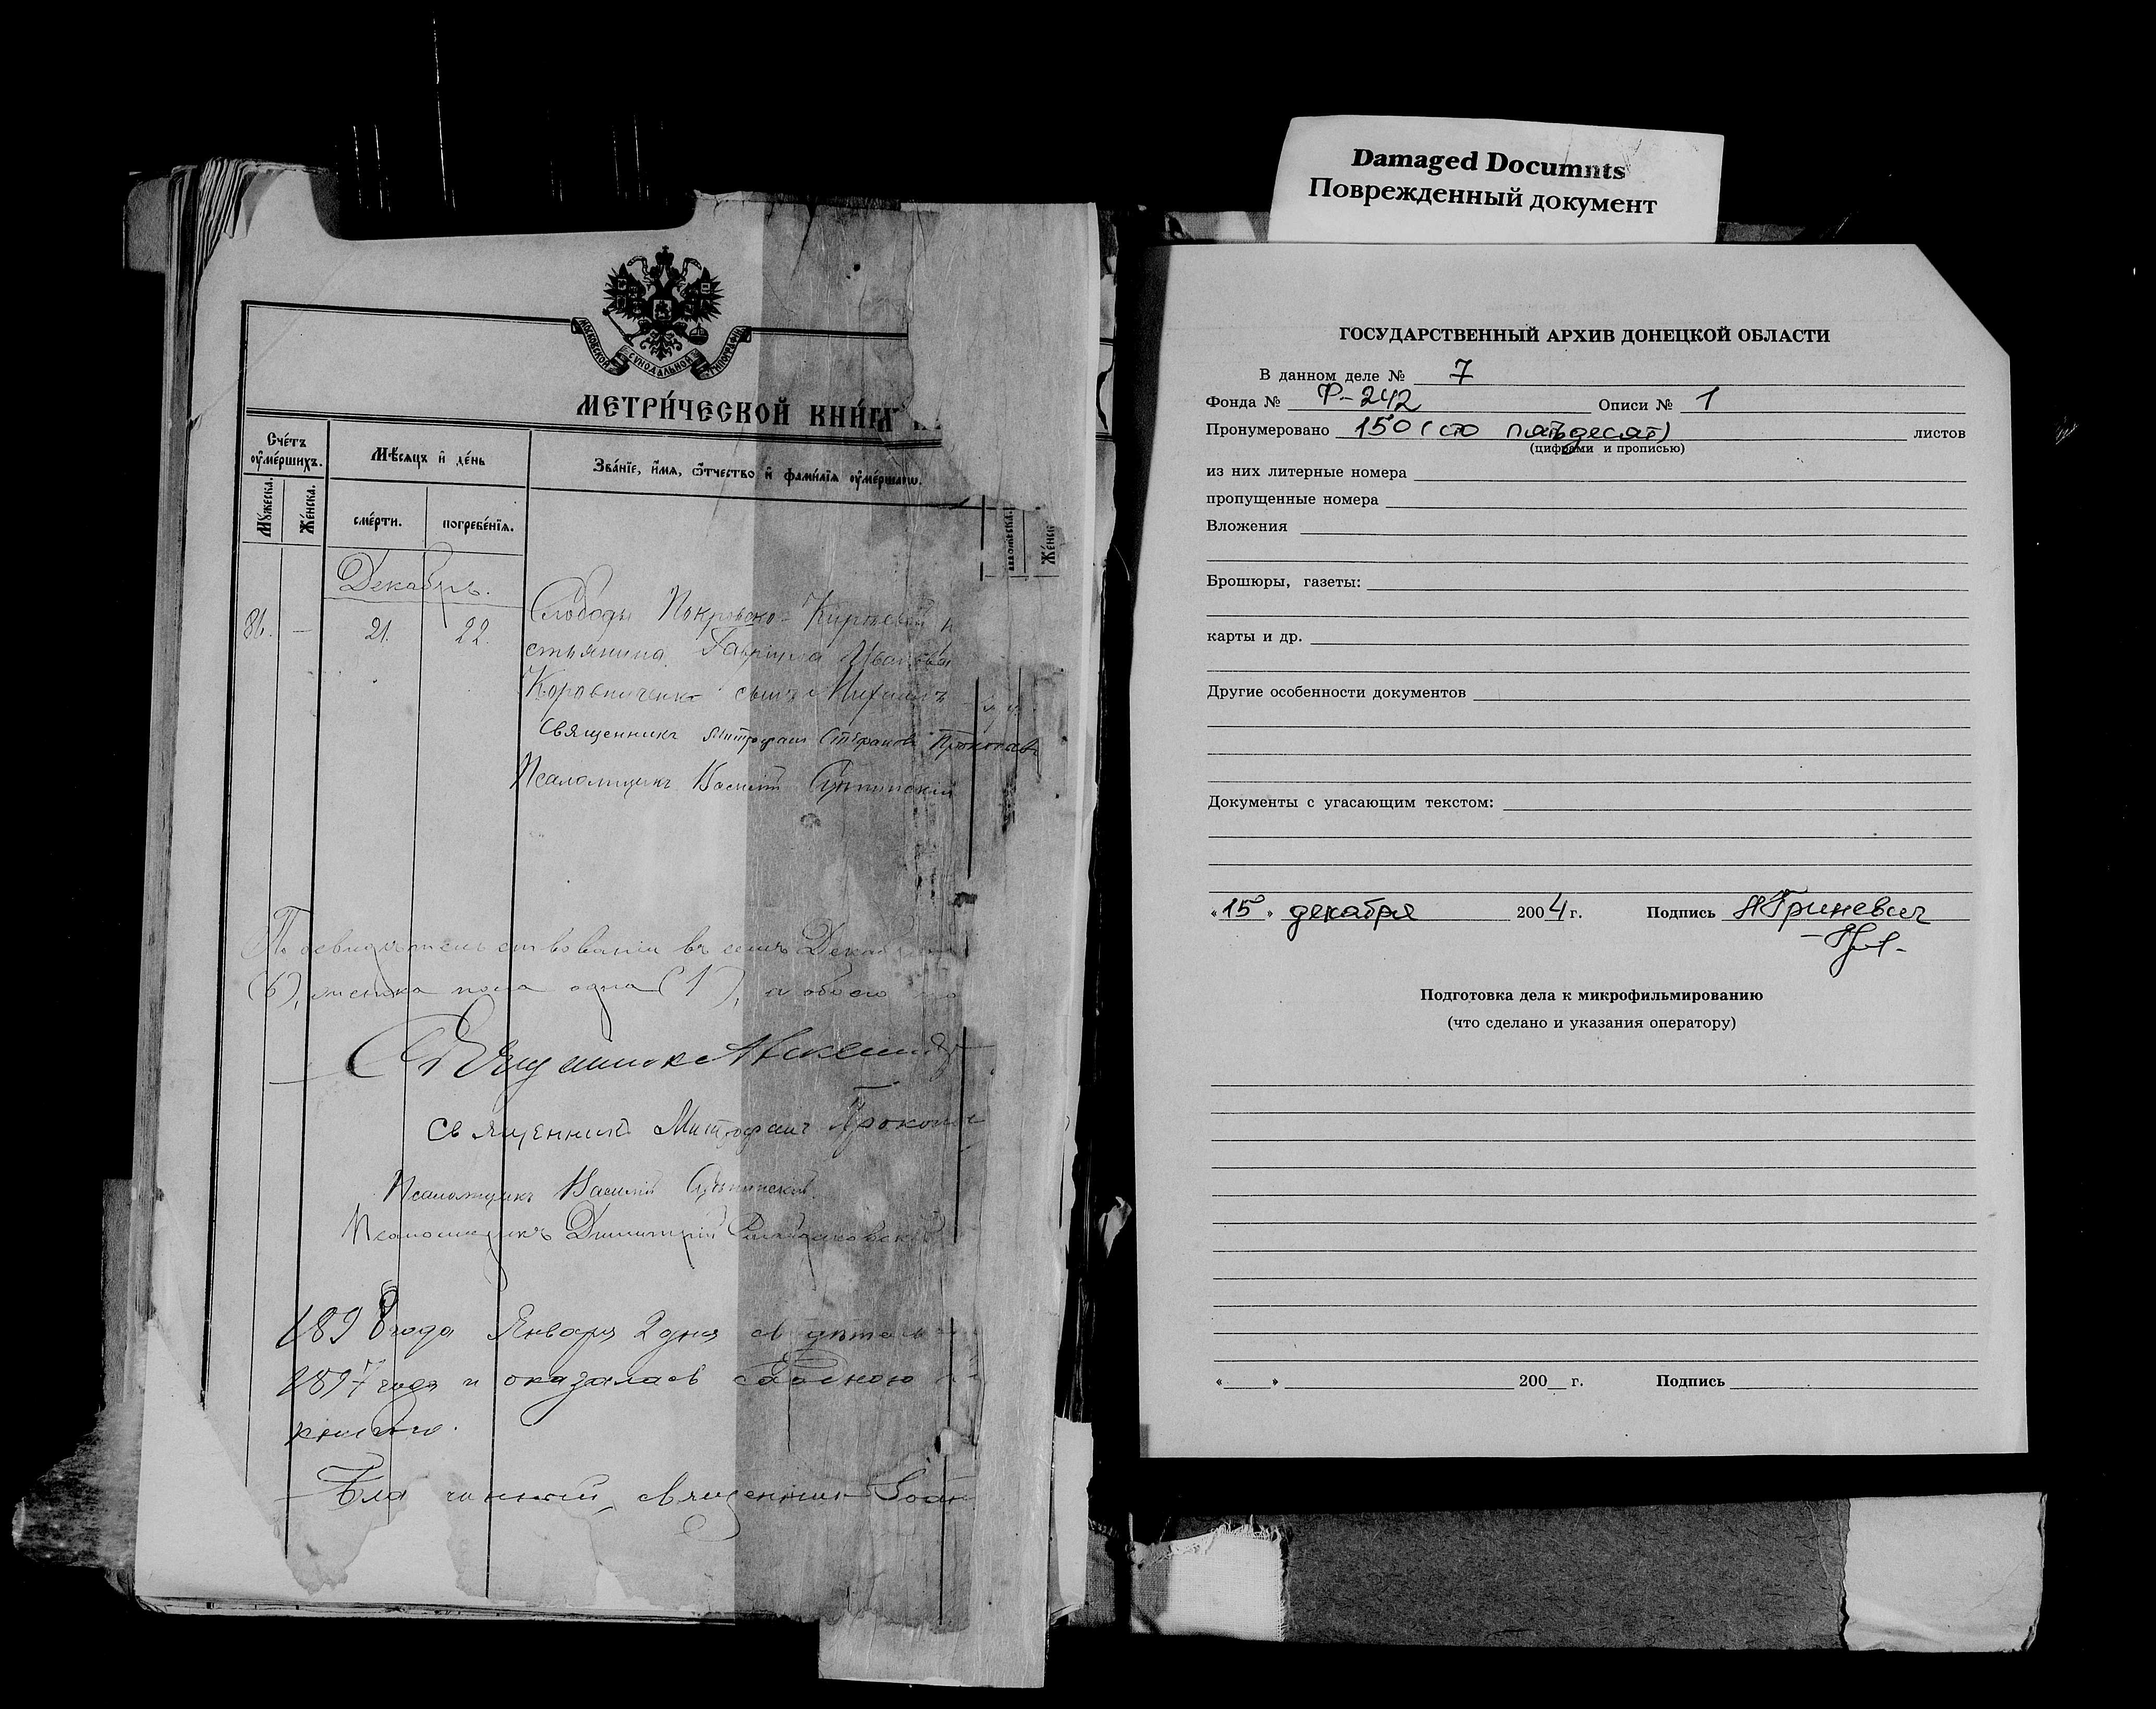 Damaged Documnts
Поврежденный документ
МОСКОВСКОЙ СѴНОДАЛЬНОЙ ТИПОГРАФІИ
МЕТРИ́ЧЕСКОЙ КНИ́ГИ
Сче́тъ ᲂу҆ме́ршихъ.
Мѣ́сяцъ и҆ де́нь
Зва́нїе, и҆́мѧ, ѻ҆́тчество и҆ фами́лїѧ ᲂу҆ме́ршагѡ.
Мꙋ́жеска.
Же́нска.
сме́рти.
погребе́нїѧ.
Декабрь.
86. — 21. 22. Слободы Покровско-Киреевки
стьянина Гавріила Иванова
Коравниченко сынъ Михаилъ
Священникъ Митрофанъ Стефановъ Прокоповъ
Псаломщикъ Василій
По освидѣтельствованіи въ семъ Декаб
(6), женска пола одна (1), а обоего по
Священникъ
Священникъ Митрофанъ Прокопов
Псаломщикъ Василій
Псаломщикъ Димитрій
1898 года Января 2 дня
1897 года и оказалась сходною
книгою.
Благочинный, священникъ Іоан
ГОСУДАРСТВЕННЫЙ АРХИВ ДОНЕЦКОЙ ОБЛАСТИ
В данном деле № 7
Фонда № Ф-242 Описи № 1
Пронумеровано 150 (сто пятьдесят) листов
(цифрами и прописью)
из них литерные номера
пропущенные номера
Вложения
Брошюры, газеты:
карты и др.
Другие особенности документов
Документы с угасающим текстом:
«15» декабря 2004 г. Подпись Н Гриневич
Подготовка дела к микрофильмированию
(что сделано и указания оператору)
«___» 200__ г. Подпись